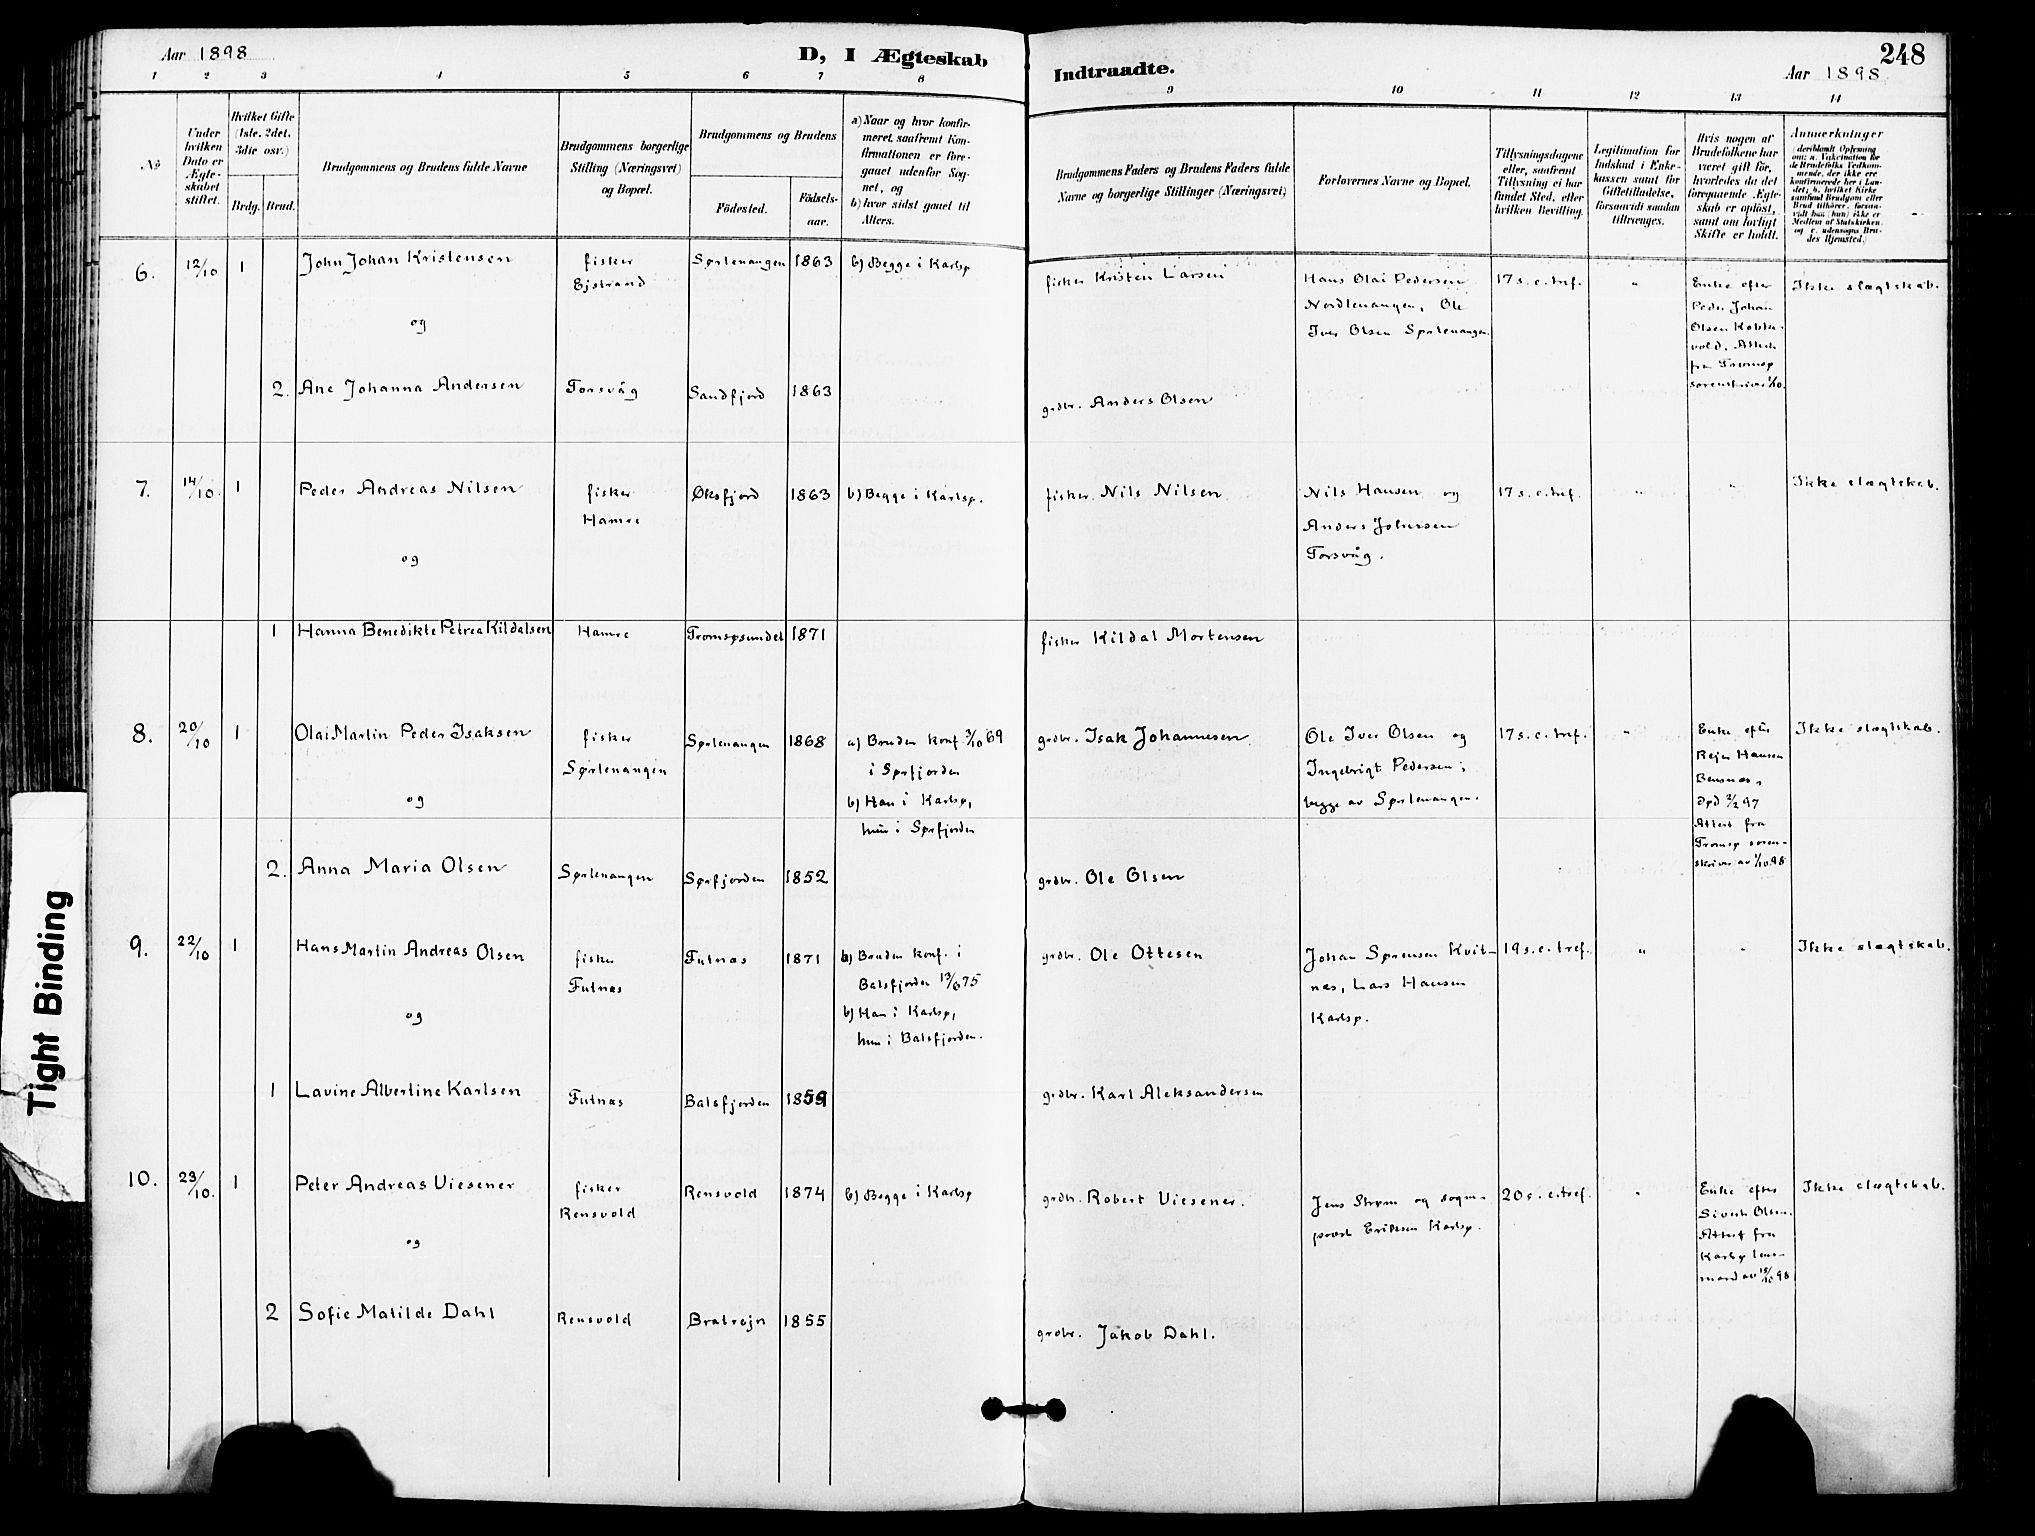 Aar 1898
D, I Ægteskab
Indtraadte.
248
Aar 1898
1 2 3 4 5 6 7 8 9 10 11 12 13 14
No
Under hvilken Dato er Ægteskabet stiftet.
Hvilket Gifte (1ste, 2det, 3die osv.)
Brdg. Brud.
Brudgommens og Brudens fulde Navne
Brudgommens borgerlige Stilling (Næringsvei) og Bopæl.
Brudgommens og Brudens
Födested.
Födselsaar.
a) Naar og hvor konfirmeret, saafremt Konfirmationen er foregaaet udenfor Sognet, og
b) hvor sidst gaaet til Alters.
Brudgommens Faders og Brudens Faders fulde Navne og borgerlige Stillinger (Næringsvei)
Forlovernes Navne og Bopæl.
Tillysningsdagene eller, saafremt Tillysning ei har fundet Sted, efter hvilken Bevilling.
Legitimation for Indskud i Enkekassen samt for Giftetilladelse, forsaavidt saadan tiltrenges.
Hvis nogen af Brudefolkene har været gift för, hvorledes da det foregaaende Ægteskab er oplöst, samt om lovligt Skifte er holdt.
Anmerkninger
(deriblandt Oplysning om: a. Vakcination for de Brudefolks Vedkommende, der ikke ere konfirmerede her i Landet; b. hvilket Kirkesamfund Brudgom eller Brud tilhörer, forsaavidt han (hun) ikke er Medlem af Statskirken, og c. udensogns Brudes Hjemsted.)
6. 12/10 1 John Johan Kristensen fisker Sørlenangen 1863 b) Begge i Karlsø fisker Kristen Larsen Hans Olai Pedersen 17 s. e. tref. " Enke efter Ikke slægtskab.
Ejstrand Nordlenangen, Ole Peder Johan
og Iver Olsen Sørlenangen. Olsen
Attest
fra Tromsø
2. Ane Johanna Andersen Torsvåg Sandfjord 1863 grdbr. Anders Olsen sorenskriver 1/10.
7. 14/10. 1 Peder Andreas Nilsen fisker Øksfjord 1863 b) Begge i Karlsø. fisker Nils Nilsen Nils Hansen og 17 s. e. tref. " " Ikke slægtskab.
Hamre Anders Johnsen
og Torsvåg.
1 Hanna Benedikte Petrea Kildalsen Hamre Tromsøsundet 1871 fisker Kildal Mortensen
8. 20/10 1 Olai Martin Peder Isaksen fisker Sørlenangen 1868 a) Bruden konf. 3/10 69 grdbr. Isak Johannesen Ole Iver Olsen og 17 s. e. tref. " Enke efter Ikke slægtskab.
Sørlenangen i Sørfjorden Ingebrigt Pedersen; Hansen
og b) Han i Karlsø, begge av Sørlenangen. Bensnæs,
hun i Sørfjorden død 2/2 97
Attest fra
Tromsø soren-
2. Anna Maria Olsen Sørlenangen Sørfjorden 1852 grdbr. Ole Olsen skriver av 1/10 98
9. 22/10 1 Hans Martin Andreas Olsen fisker Futnæs 1871 a) Bruden konf. i grdbr. Ole Ottesen Johan Sørensen Kvit- 19 s. e. tref. " " Ikke slægtskab.
Futnæs Balsfjorden 13/6 75 næs, Lars Hansen
og b) Han i Karlsø, Karlsø.
hun i Balsfjorden.
1 Lavine Albertine Karlsen Futnæs Balsfjorden 1859 grdbr. Karl Aleksandersen
10. 23/10. 1 Peter Andreas Viesener fisker Rensvold 1874 b) Begge i Karlsø grdbr. Robert Viesener. Jens Strøm og sogne- 20 s. e. tref. " Enke efter Ikke slægtskab.
Rensvold prest Eriksen Karlsø. Sivert Olsen.
og Attest fra
Karlsø lens-
mand av 15/10 98
2 Sofie Matilde Dahl Rensvold Bratrejn 1855 grdbr. Jakob Dahl.
Tight Binding